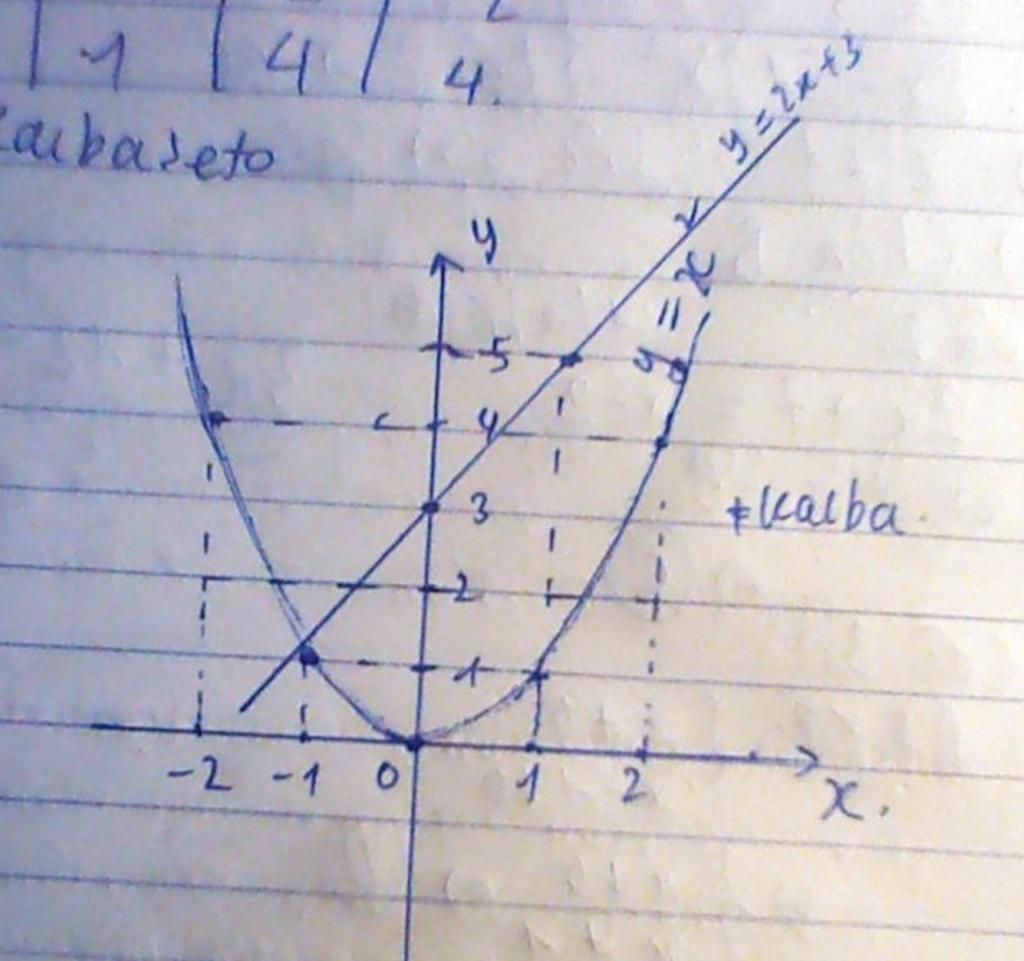 1 4 4.
y = 2x+3
y
y = x
5
4
3
2
1
-2 -1 0 1 2
x.